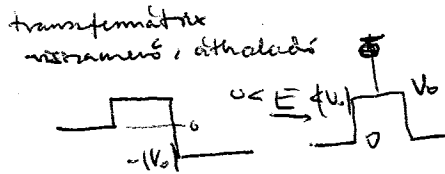 transzfermátrix
visszamenő, áthaladó
0 < E < |V₀| V₀
0
-|V₀| 0